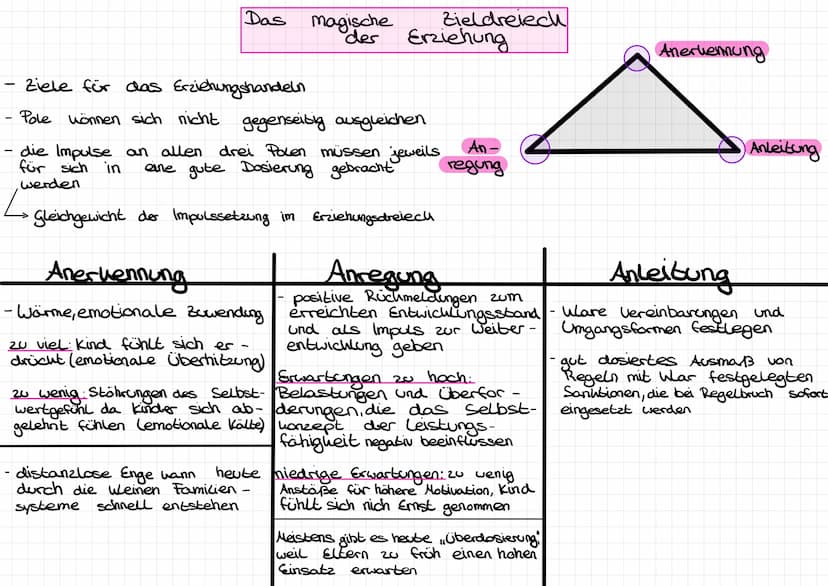 Das magische Zieldreieck
der Erziehung
Anerkennung
- Ziele für das Erziehungshandeln
- Pole können sich nicht gegenseitig ausgleichen
- die Impulse an allen drei Polen müssen jeweils
für sich in eine gute Dosierung gebracht
werden
An-
regung
Anleitung
→ Gleichgewicht der Impulssetzung im Erziehungsdreieck
Anerkennung
- Wärme, emotionale Zuwendung
zu viel: Kind fühlt sich er-
drückt (emotionale Überhitzung)
zu wenig: Stöhrungen des Selbst-
wertgefühl da Kinder sich ab-
gelehnt fühlen (emotionale Kälte)
- distanzlose Enge kann heute
durch die kleinen Familien-
systeme schnell entstehen
Anregung
- positive Rückmeldungen zum
erreichten Entwicklungsstand
und als Impuls zur Weiter-
entwicklung geben
Erwartungen zu hoch:
Belastungen und Überfor-
derungen, die das Selbst-
konzept der Leistungs-
fähigkeit negativ beeinflussen
niedrige Erwartungen: zu wenig
Anstöße für höhere Motivation, Kind
fühlt sich nich Ernst genommen
Meistens gibt es heute „Überdosierung"
weil Eltern zu früh einen hohen
Einsatz erwarten
Anleitung
- Klare Vereinbarungen und
Umgangsformen festlegen
- gut dosiertes Ausmaß von
Regeln mit klar festgelegten
Sanktionen, die bei Regelbruch sofort
eingesetzt werden